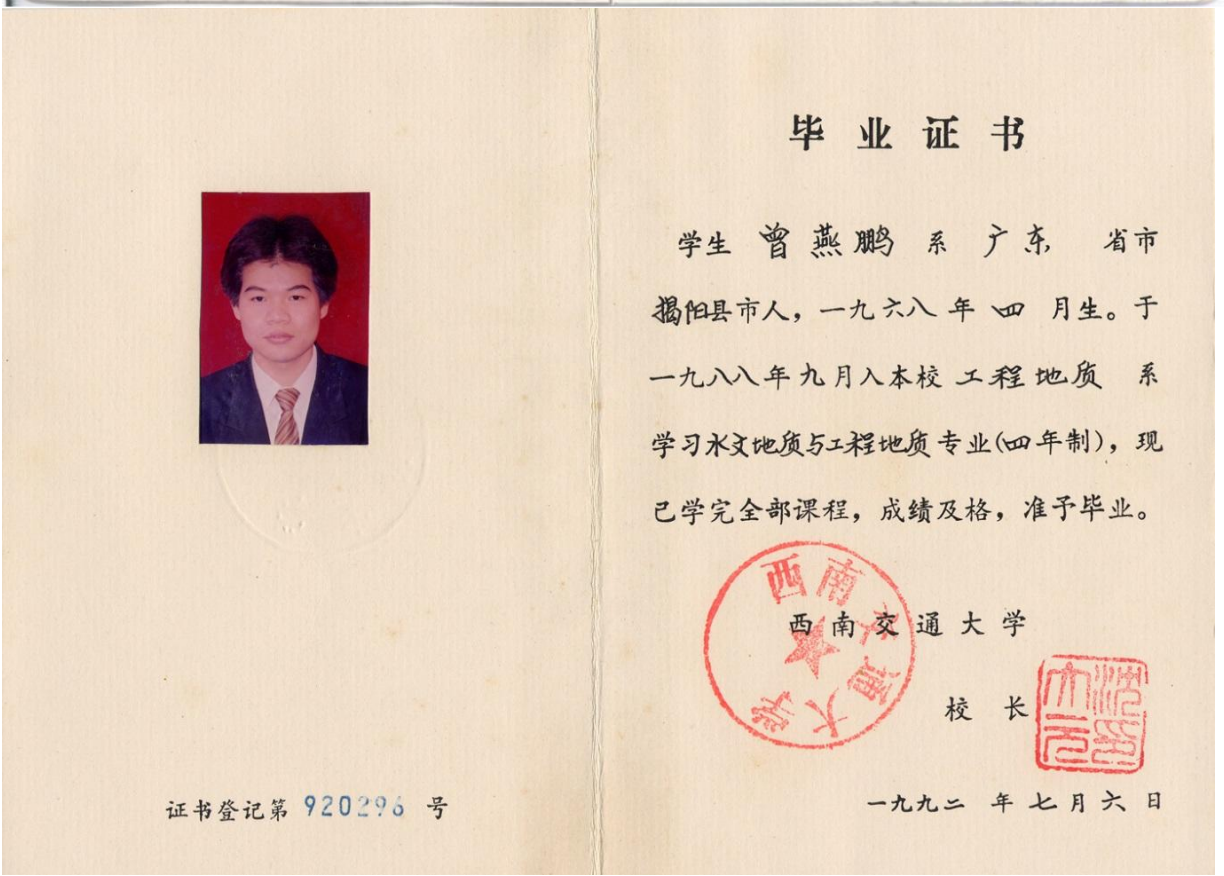 证书登记第 920296 号
毕业证书
学生 曾燕鹏 系 广东 省市
揭阳县市人，一九六八年 四 月生。于
一九八八年九月入本校 工程地质 系
学习水文地质与工程地质专业(四年制)，现
已学完全部课程，成绩及格，准予毕业。
西南交通大学
西南交通大学
校 长
沈大元印
一九九二 年 七 月 六 日